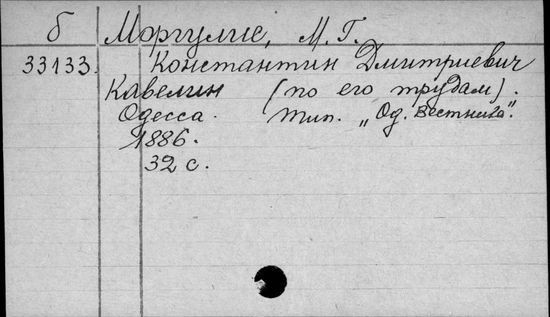 б Моргулис, М. Г.
33133. Константин Дмитриевич
Кавелин (по его трудам).
Одесса. тип. „Од. Вестника".
1886.
32 с.